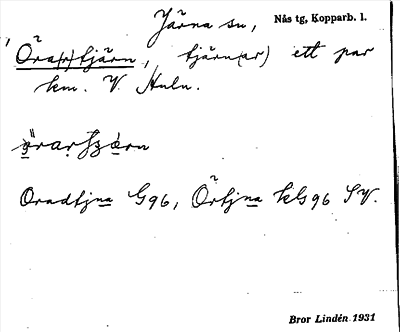 Järna sn, Nås tg, Kopparb. l.
Öra(r)tjärn, tjärn(ar) ett par
km. V. Huln.
örarʃärn
Oradtjna G96, Örtjna kls96 SV.
Bror Lindén 1931